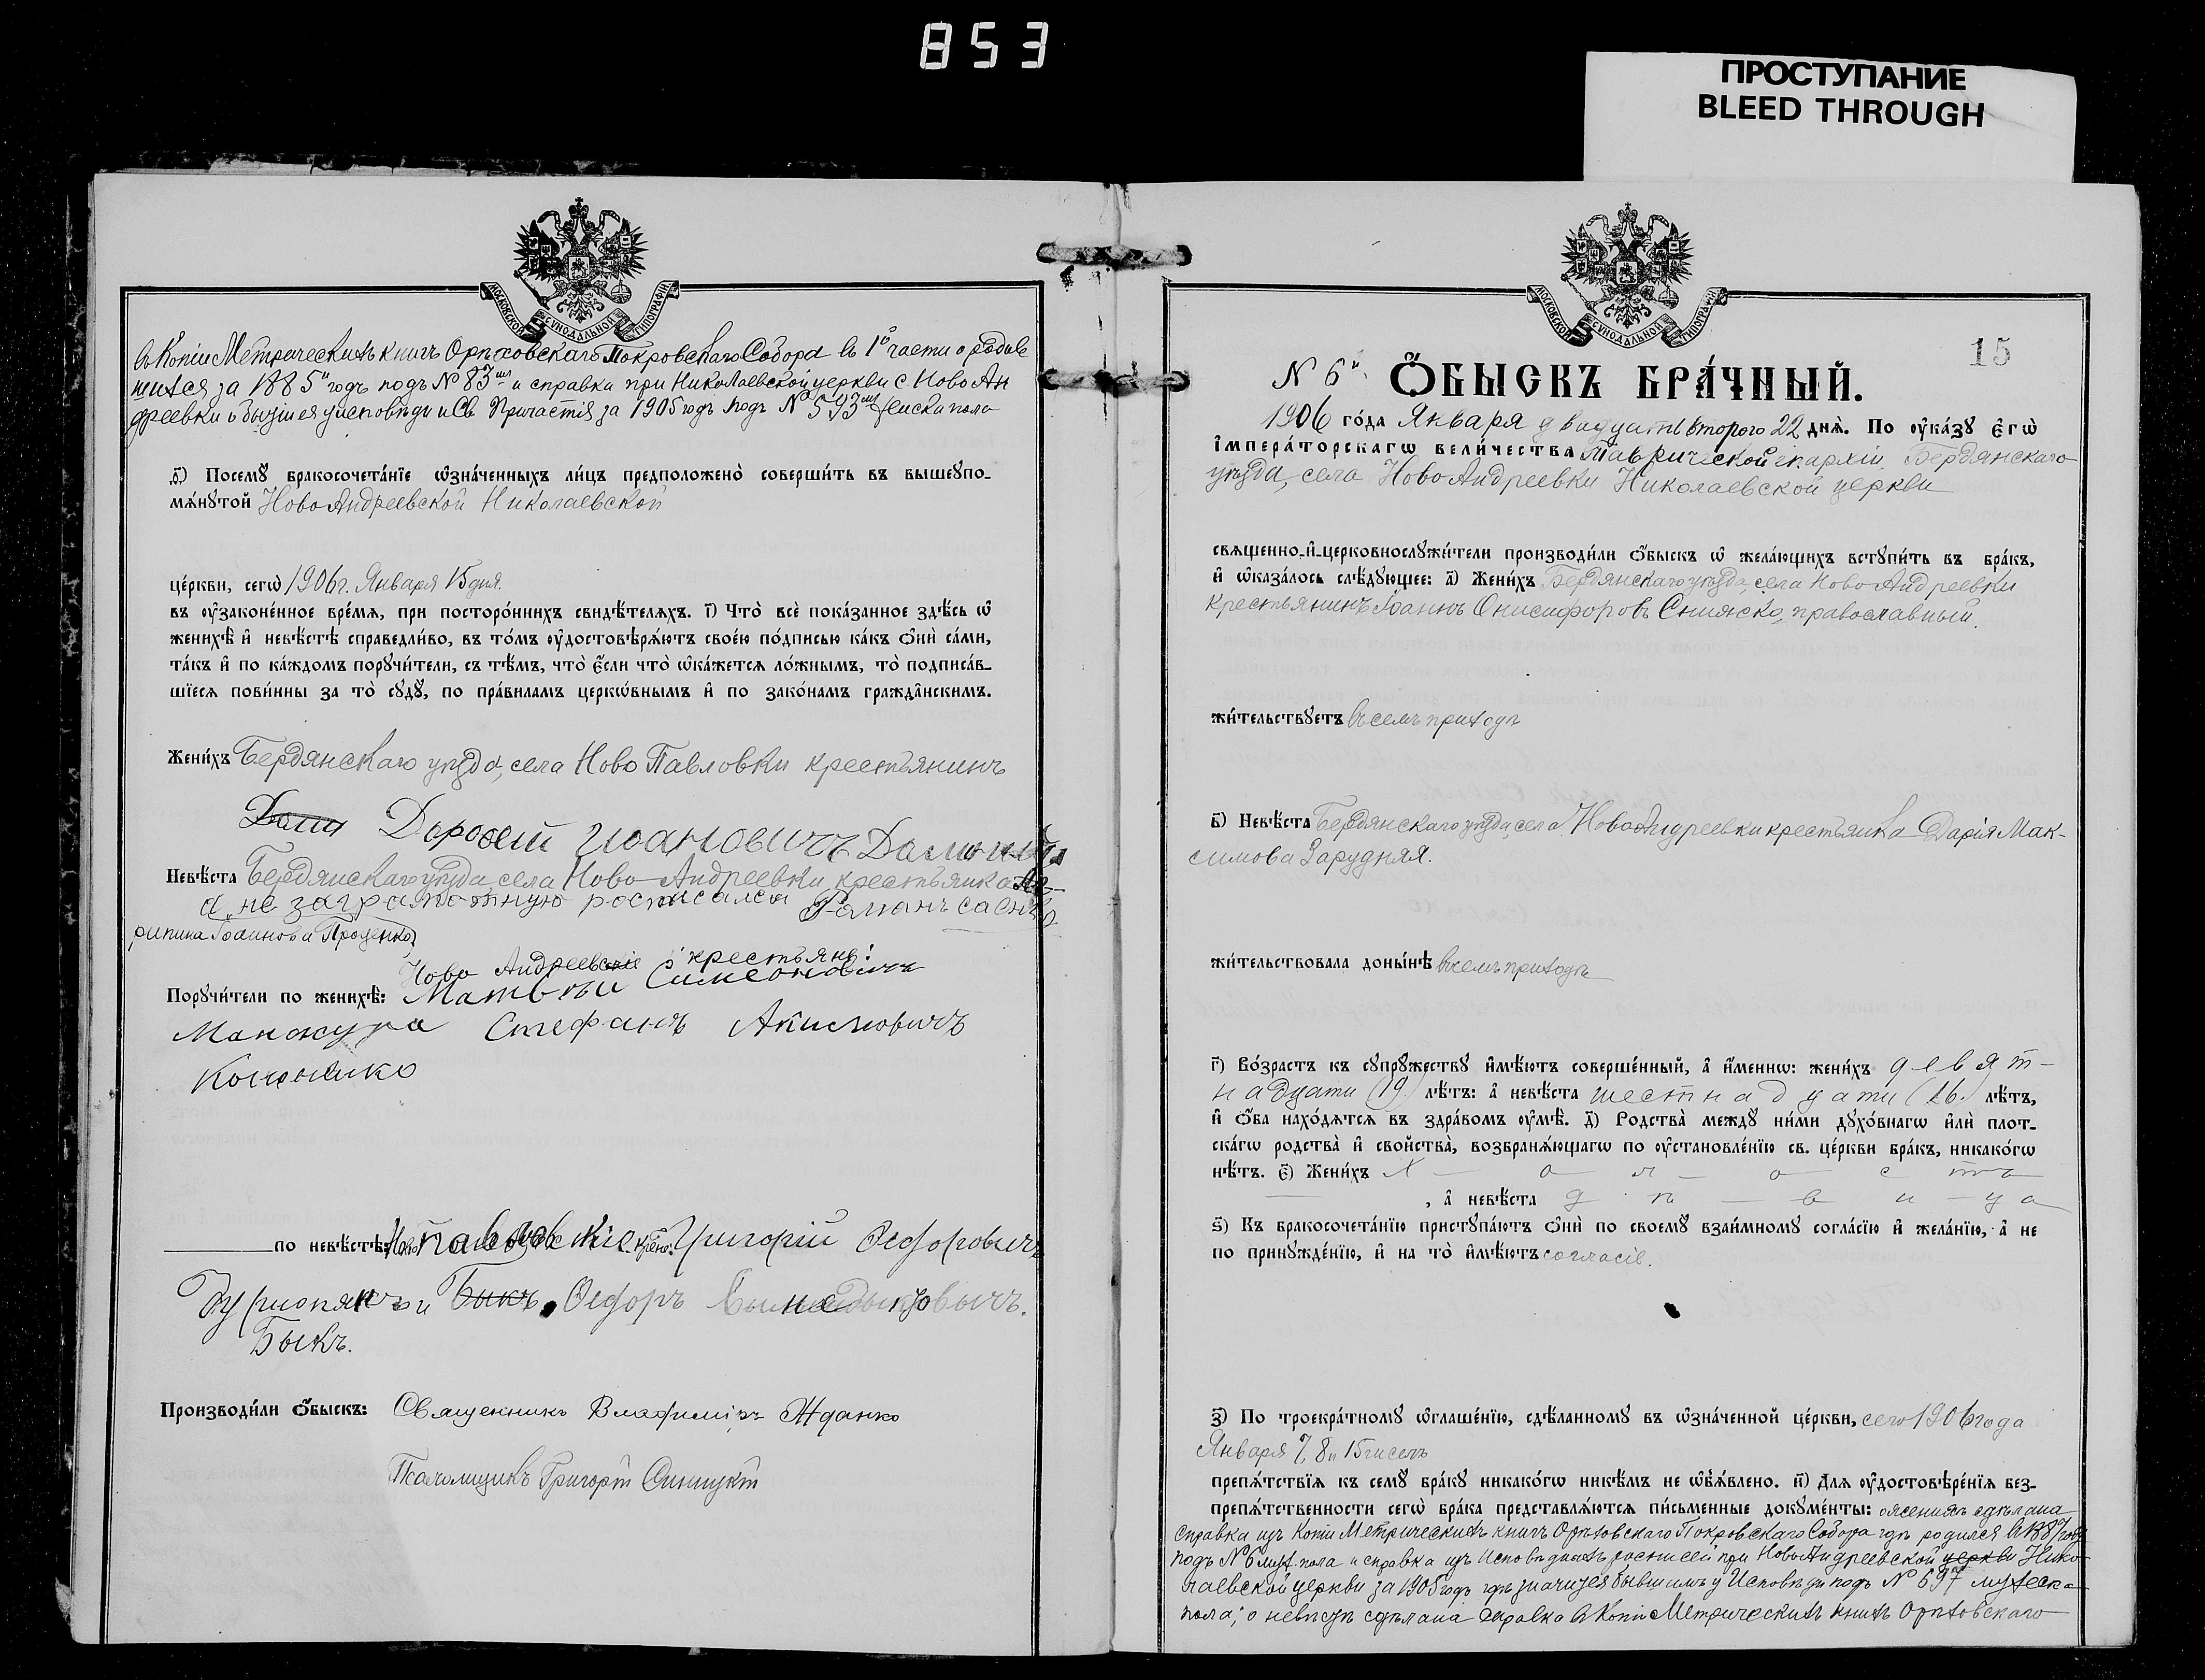 853
ПРОСТУПАНИЕ
BLEED THROUGH
МОСКОВСКОЙ СѴНОДАЛЬНОЙ ТИПОГРАФІИ
въ Копіи Метрическихъ книгъ Орѣховскаго Покровскаго Собора въ 1й части о родив
шихся за 1885й годъ подъ № 83мъ и справка при Николаевской церкви с. Ново Ан
дреевки о бывшея у исповѣди и Св. Причастія за 1905 годъ подъ № 593мъ женска пола
ѳ҃) Посемꙋ̀ бракосочета́нїе ѡ҆зна́ченныхъ ли́цъ предположено̀ соверши́ть въ вышеꙋпо-
мѧ́нꙋтой Ново Андреевской Николаевской
це́ркви, сегѡ̀ 1906 г. Января 15 дня.
въ ᲂу҆законе́нное вре́мѧ, при посторо́ннихъ свидѣ́телѧхъ. і҃) Что̀ всѐ пока́занное здѣ́сь ѡ҆
женихѣ̀ и҆ невѣ́стѣ справедли́во, въ то́мъ ᲂу҆достовѣрѧ́ютъ свое́ю по́дписью ка́къ ѻ҆нѝ са́ми,
та́къ и҆ по ка́ждомъ порꙋчи́тели, съ тѣ́мъ, что̀ є҆́сли что̀ ѡ҆ка́жетсѧ ло́жнымъ, то̀ подписа́в-
шїесѧ пови́нны за то̀ сꙋдꙋ̀, по пра́виламъ церко́внымъ и҆ по зако́намъ гражда̑нскимъ.
Жени́хъ Бердянскаго уѣзда, села Ново Павловки крестьянинъ
Дороѳей Иоановичъ
Невѣ́ста Бердянскаго уѣзда села Ново Андреевки крестьянка Аг-
а не заграмотную росписался Романъ
рипина Іоаннова Проценко
Ново Андреевскіе крестьяне:
Порꙋчи́тели по женихѣ̀: Матвѣй Симеоновичъ
Манжура Стефанъ Акимовичъ
по невѣ́стѣ: Ново Павловскіе крест. Григорій Ѳедоровичъ
и Быкъ Ѳедоръ
Быкъ.
Производи́ли ѻ҆́быскъ: Священникъ Владиміръ Жданко
Псаломщикъ Григорій Синицкій
МОСКОВСКОЙ СѴНОДАЛЬНОЙ ТИПОГРАФІИ
15
№ 6й
Ѻ҆́БЫСКЪ БРА́ЧНЫЙ.
1906 го́да Января двадцать второго 22 днѧ̀. По ᲂу҆ка́зꙋ є҆гѡ̀
і҆мпера́торскагѡ вели́чества Таврической епархіи, Бердянскаго
уѣзда, села Ново Андреевки Николаевской церкви
свѧщенно-и҆-церковнослꙋжи́тели производи́ли ѻ҆́быскъ ѡ҆ жела́ющихъ встꙋпи́ть въ бра́къ,
и҆ ѡ҆каза́лось слѣ́дꙋющее: а҃) Жени́хъ Бердянскаго уѣзда, села Ново Андреевки
крестьянинъ Іоаннъ Онисифоровъ православный.
жи́тельствꙋетъ въ семъ приходѣ
в҃) Невѣ́ста Бердянскаго уѣзда, села Ново Андреевки крестьянка Дарія Мак-
симова Зарудняя.
жи́тельствовала доны́нѣ въ семъ приходѣ
г҃) Во́зрастъ къ сꙋпрꙋ́жествꙋ и҆мѣ́ютъ соверше́нный, а҆ и҆́меннѡ: жени́хъ девят-
надцати (19) лѣ́тъ: а҆ невѣ́ста шестнадцати (16.) лѣ́тъ,
и҆ ѻ҆́ба нахо́дѧтсѧ въ здра́вомъ ᲂу҆мѣ̀. д҃) Родства̀ междꙋ̀ ни́ми дꙋхо́внагѡ и҆лѝ плот-
ска́гѡ родства̀ и҆ свойства̀, возбранѧ́ющагѡ по ᲂу҆становле́нїю св. це́ркви бра́къ, никако́гѡ
нѣ́тъ. є҃) Жени́хъ х о л о с тъ
, а҆ невѣ́ста д ѣ в и ца
ѕ҃) Къ бракосочета́нїю пристꙋпа́ютъ ѻ҆нѝ по своемꙋ̀ взаи́мномꙋ согла́сїю и҆ жела́нїю, а҆ не
по принꙋжде́нїю, и҆ на то̀ и҆мѣ́ютъ согласіе.
з҃) По троекра́тномꙋ ѡ҆глаше́нїю, сдѣ́ланномꙋ въ ѡ҆зна́ченной це́ркви, сего 1906 года
Января 7, 8 и 15 чиселъ
препѧ́тствїѧ къ семꙋ̀ бра́кꙋ никако́гѡ никѣ́мъ не ѡ҆б̾ѧ́влено. и҃) Для ᲂу҆достовѣре́нїѧ без-
препѧ́тственности сегѡ̀ бра́ка представлѧ́ютсѧ пи́сьменные докꙋме́нты: о женихѣ сдѣлана
справка изъ Копіи Метрическихъ книгъ Орѣховскаго Покровскаго Собора гдѣ родился въ 1887 году
подъ № 6 муж. пола и справка изъ Исповѣдныхъ росписей при Ново Андреевской церкви Нико-
лаевской церкви за 1905 годъ гдѣ значится бывшимъ у Исповѣди подъ № 697 мужеска
пола; о невѣстѣ сдѣлана справка въ Копіи Метрическихъ книгъ Орѣховскаго